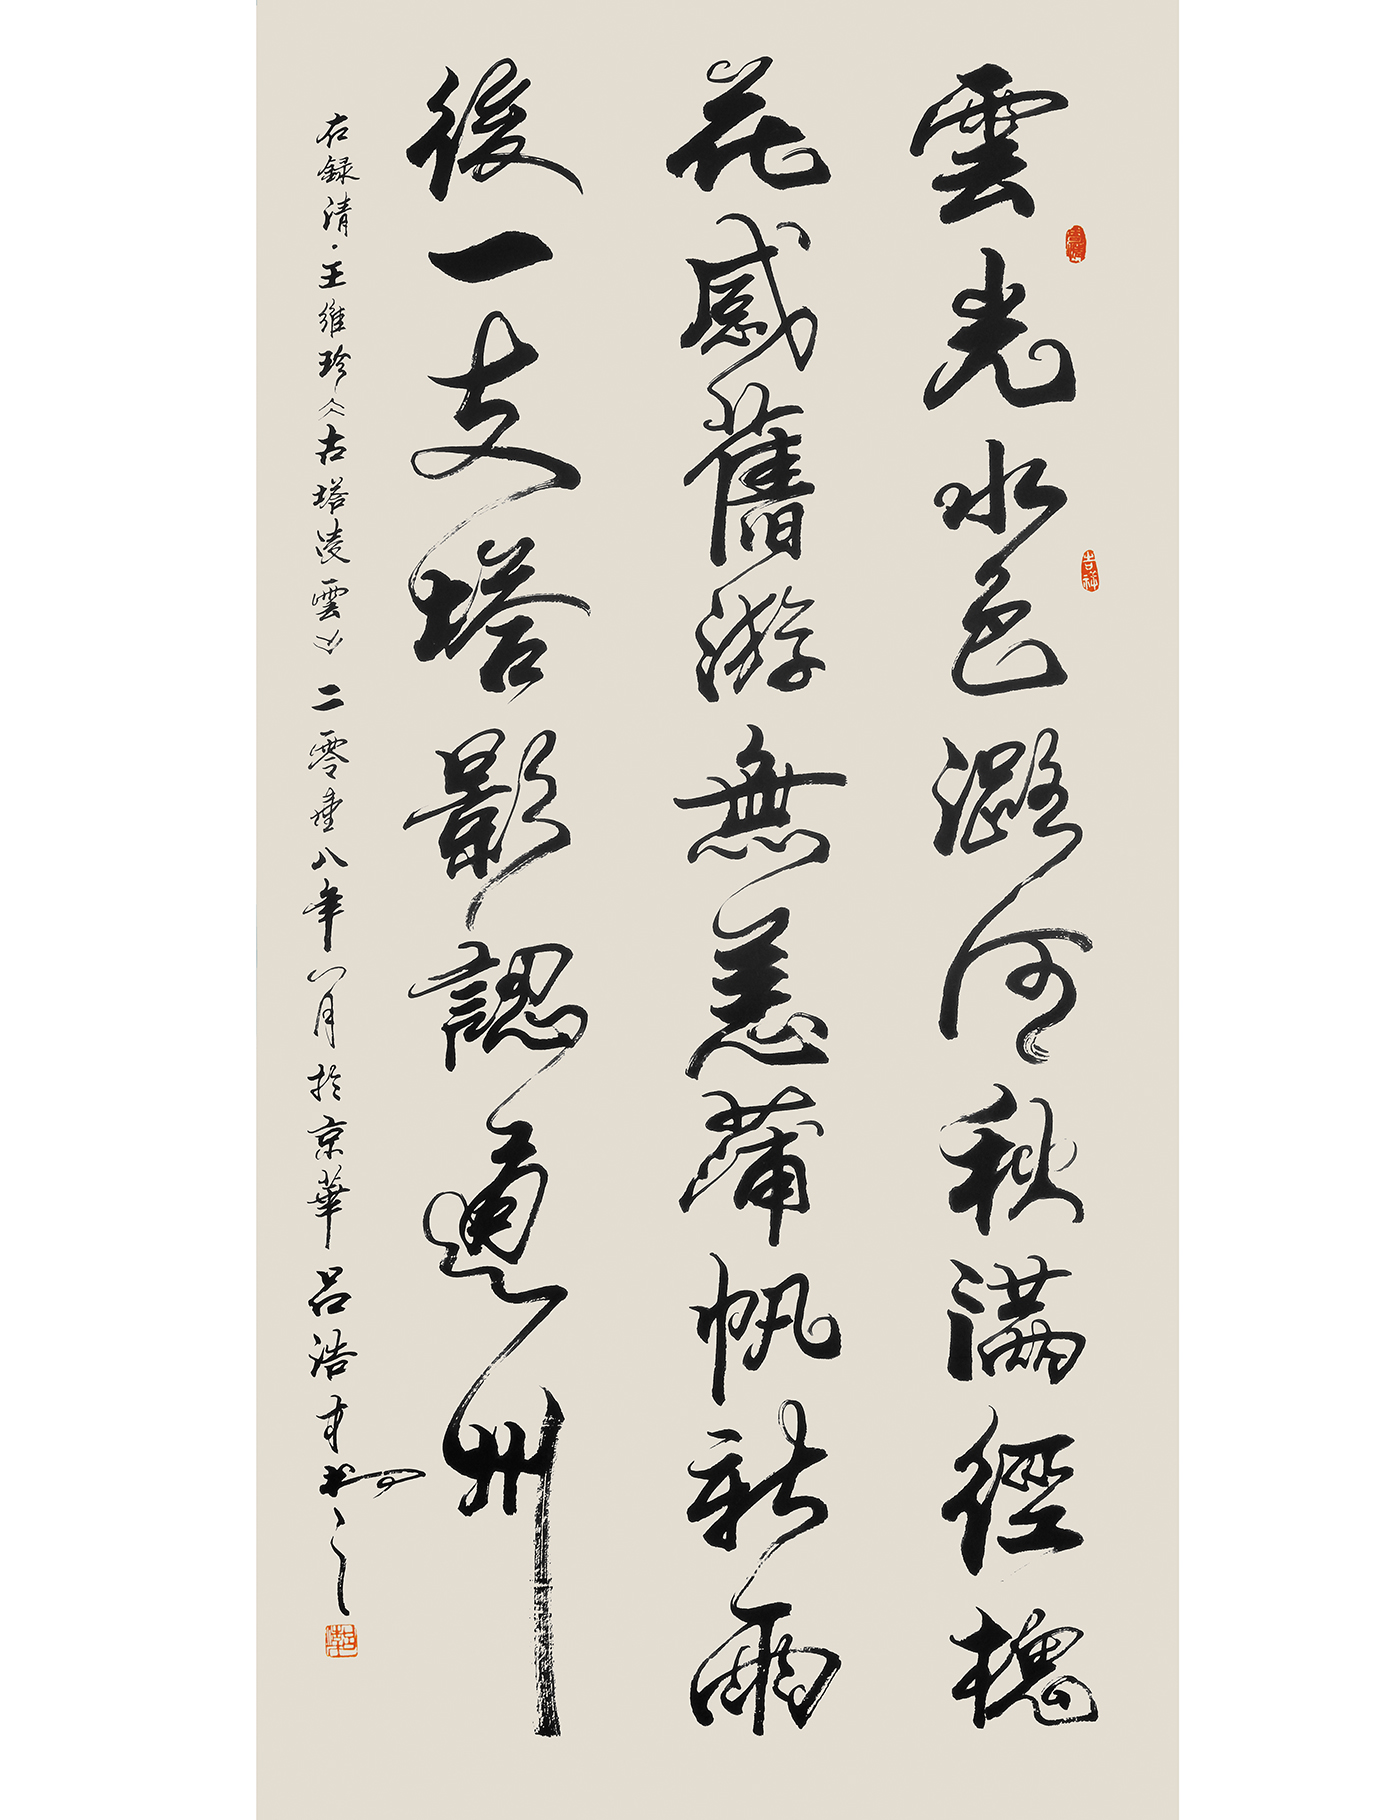 雲光水色潞河秋滿徑槐
花感舊游無恙蒲帆新雨
後一支塔影認通州
右録清·王維珍《古塔凌雲》二零壹八年八月於京華吕浩
吉祥